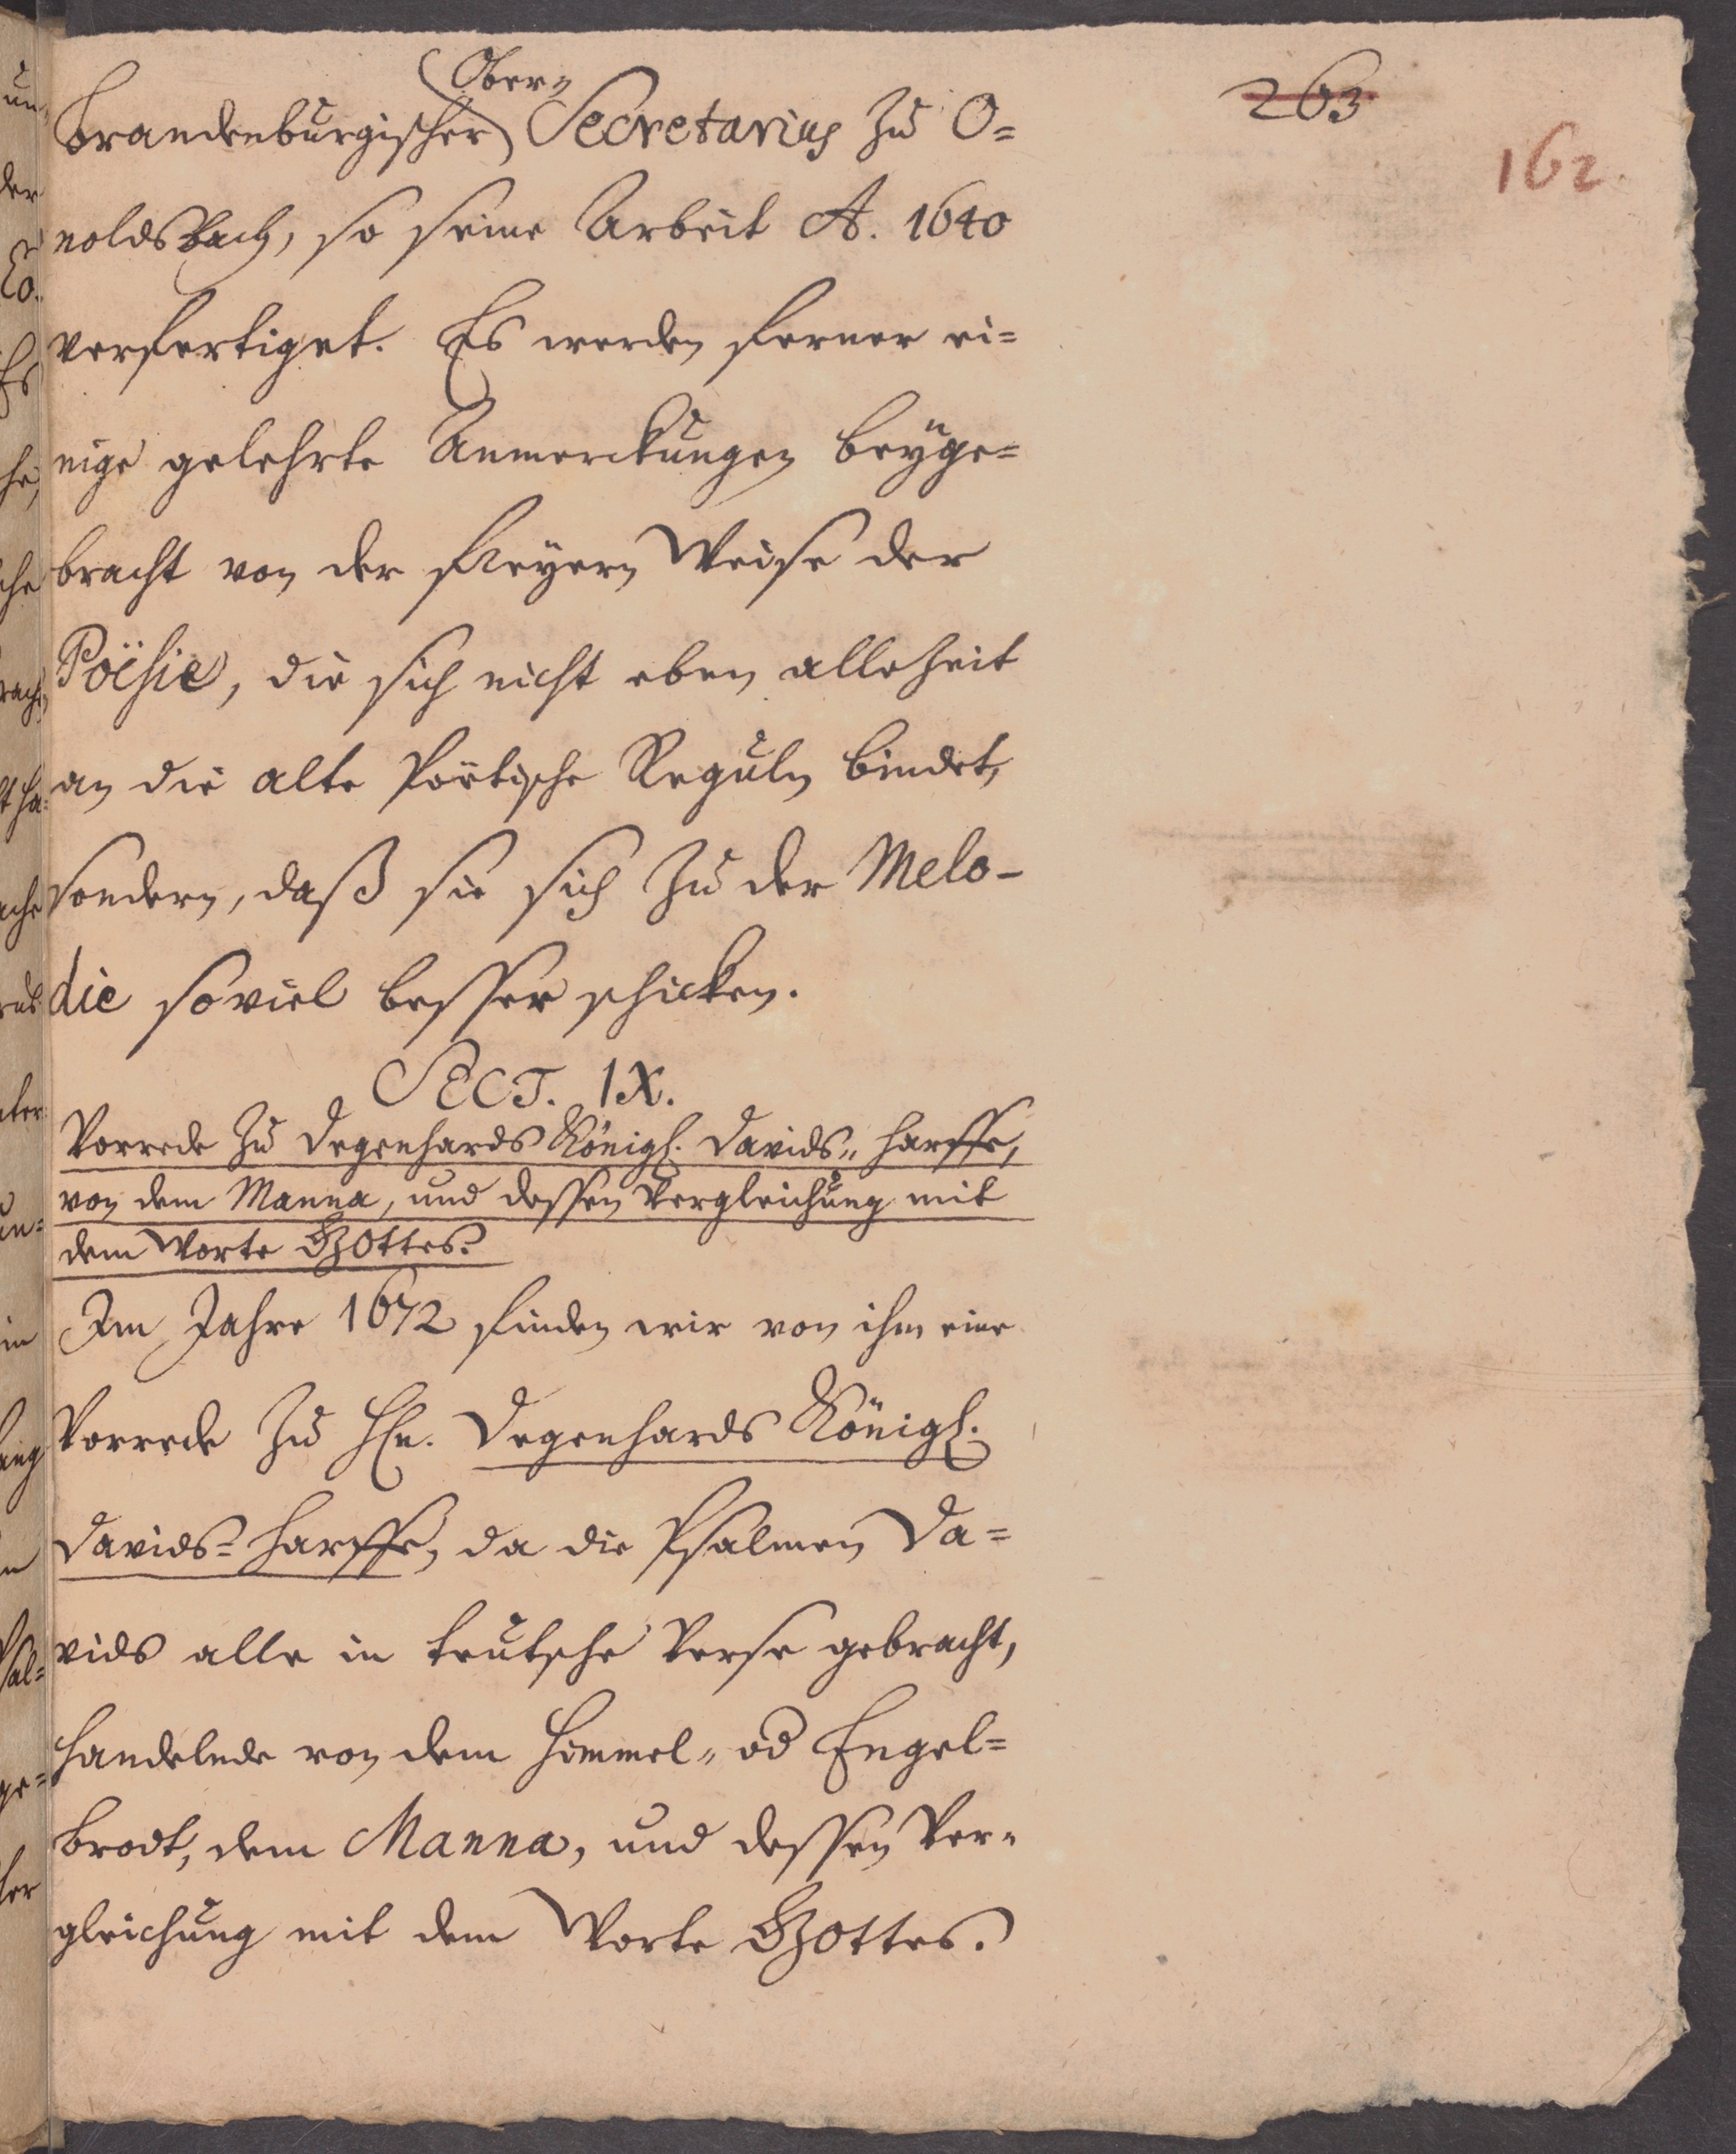 263
162.
Ober=
Brandenburgischer Secretarius zu O=
noldsbach, so seine Arbeit A. 1640
verfertiget. Es werden ferner ei=
nige gelehrte Anmerckungen beyge=
bracht von der freyern Weise der
Poësie, die sich nicht eben allezeit
an die alte Poëtische Reguln bindet,
sondern, daß sie sich zu der Melo-
die soviel besser schicken.
SECT. IX.
Vorrede zu Degenhards Königl. Davids= Harffe,
von dem Manna, und dessen Vergleichung mit
dem Worte GOttes.
Im Jahre 1672 finden wir von ihm eine
Vorrede zu Hn. Degenhards Königl.
Davids= Harffe, da die Psalmen Da=
vids alle in teutsche Verse gebracht,
handelnde von dem Himmel= od Engel=
Brodt, dem Manna, und dessen Ver=
gleichung mit dem Worte GOttes.